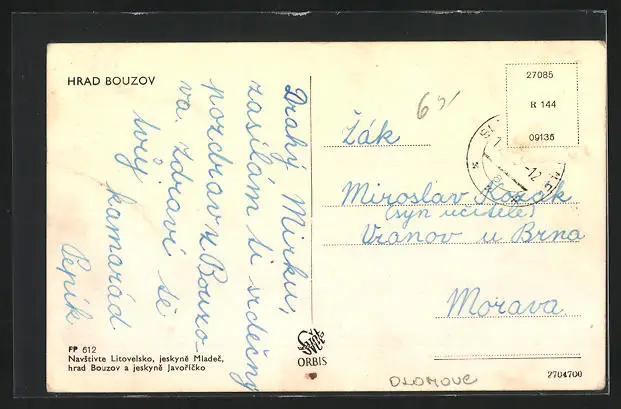 HRAD BOUZOV
Drahý Mirku,
zasílám ti srdečný
pozdrav z Bouzo-
va. Zdraví tě
tvůj kamarád
Pepík
FP 612
Navštivte Litovelsko, jeskyně Mladeč,
hrad Bouzov a jeskyně Javoříčko
ORBIS
27085
R 144
09135
Žák
Miroslav Kozák
(syn učitele)
Vranov u Brna
Morava
OLOMOUC
2704700